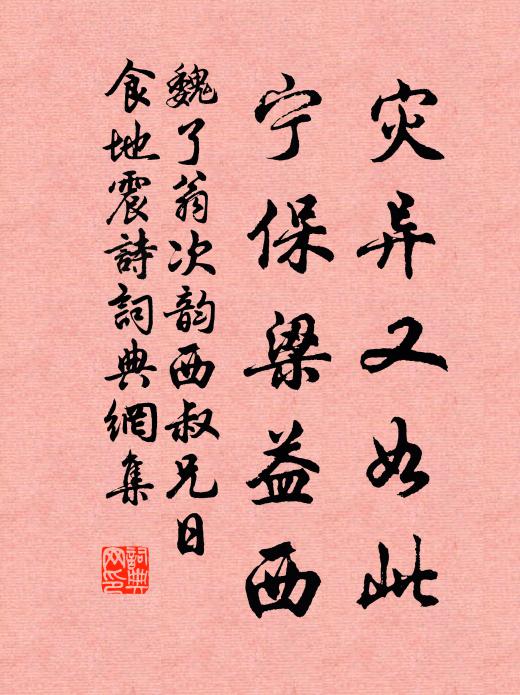 灾异又如此
宁保梁益西
魏了翁次韵西叔兄日
食地震詩詞典網集
詞典
网印